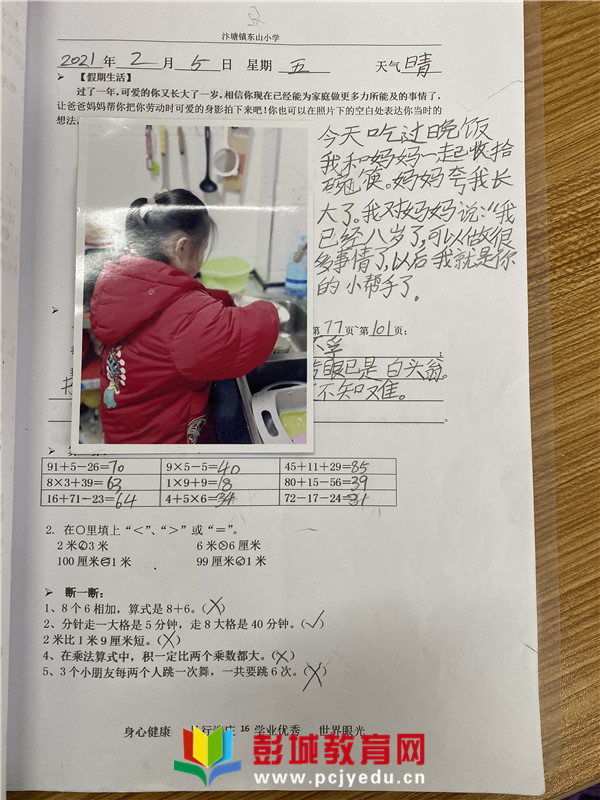 汴塘镇东山小学
2021年 2 月 5 日 星期 五 天气 晴
【假期生活】
过了一年,可爱的你又长大了一岁,相信你现在已经能为家庭做更多力所能及的事情了,
让爸爸妈妈帮你把你劳动时可爱的身影拍下来吧!你也可以在照片下的空白处表达你当时的
想法。
今天吃过晚饭
我和妈妈一起收拾
碗筷。妈妈夸我长
大了。我对妈妈说:“我
已经八岁了,可以做很
多事情了,以后我就是你
的小帮手了。
第 77 页~第 101 页;
眼已是白头翁。
不知难。
91+5-26=70 9×5-5=40 45+11+29=85
8×3+39=63 1×9+9=18 80+15-56=39
16+71-23=64 4+5×6=34 72-17-24=31
2. 在○里填上“<”、“>”或“=”。
2 米<3 米 6 米>6 厘米
100 厘米=1 米 99 厘米<1 米
断一断:
1、8 个 6 相加,算式是 8+6。(×)
2、分针走一大格是 5 分钟,走 8 大格是 40 分钟。(√)
2 米比 1 米 9 厘米短。(×)
4、在乘法算式中,积一定比两个乘数都大。(×)
5、3 个小朋友每两个人跳一次舞,一共要跳 6 次。(×)
身心健康 16 学业优秀 世界眼光
彭城教育网
www.pcjyedu.cn